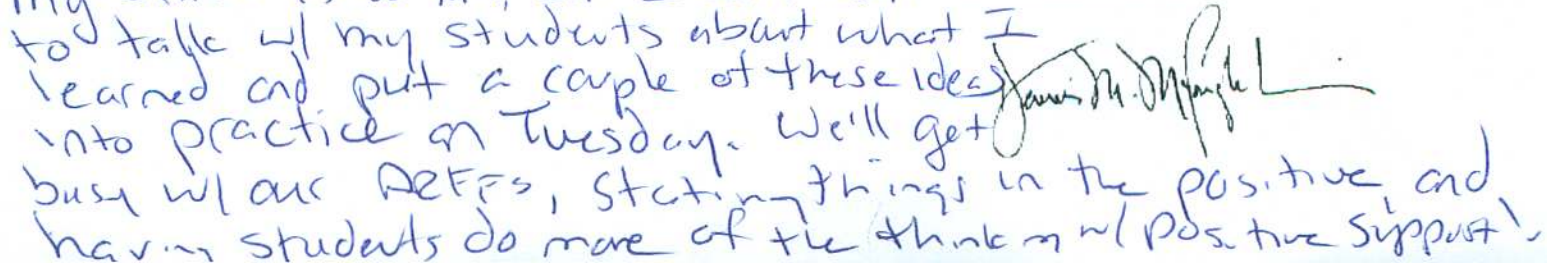 my
to talk w/ my students about what I
learned and put a couple of these ideas
into practice on Tuesday. We'll get
busy w/ our stating things in the positive and
having students do more of the thinking w/ positive support!